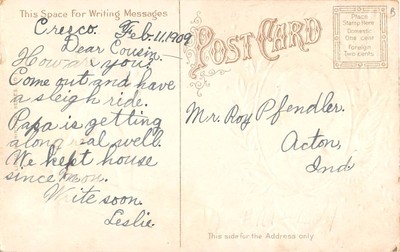 This Space For Writing Messages
Cresco. Feb. 11, 1909
Dear Cousin.
How are you?
Come out and have
a sleigh ride.
Papa is getting
along real well.
We kept house
since mon.
Write soon.
Leslie.
POST CARD
Place
Stamp Here
Domestic
One cent
Foreign
Two cents
Mr. Roy Pfendler.
Acton,
Ind
This side for the Address only